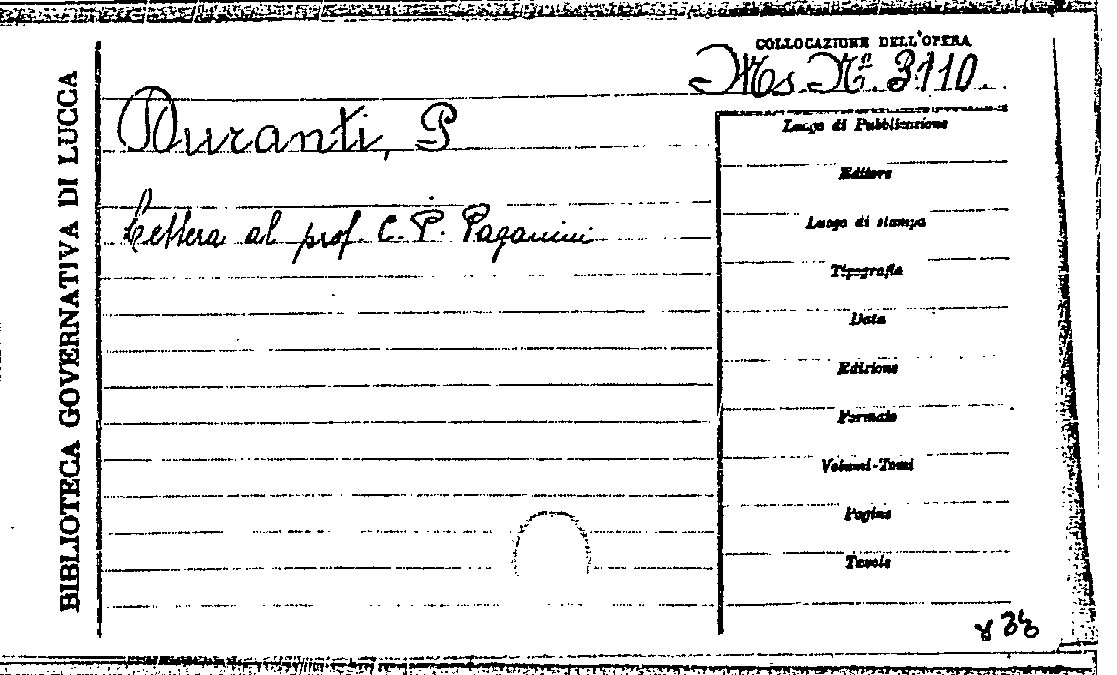 BIBLIOTECA GOVERNATIVA DI LUCCA
COLLOCAZIONE DELL'OPERA
Ms. Nº. 3110.
Duranti, P
Lettera al prof. C. P. Paganini
Luogo di Pubblicazione
Editore
Luogo di stampa
Tipografia
Data
Edizione
Formato
Volumi-Tomi
Pagine
Tavole